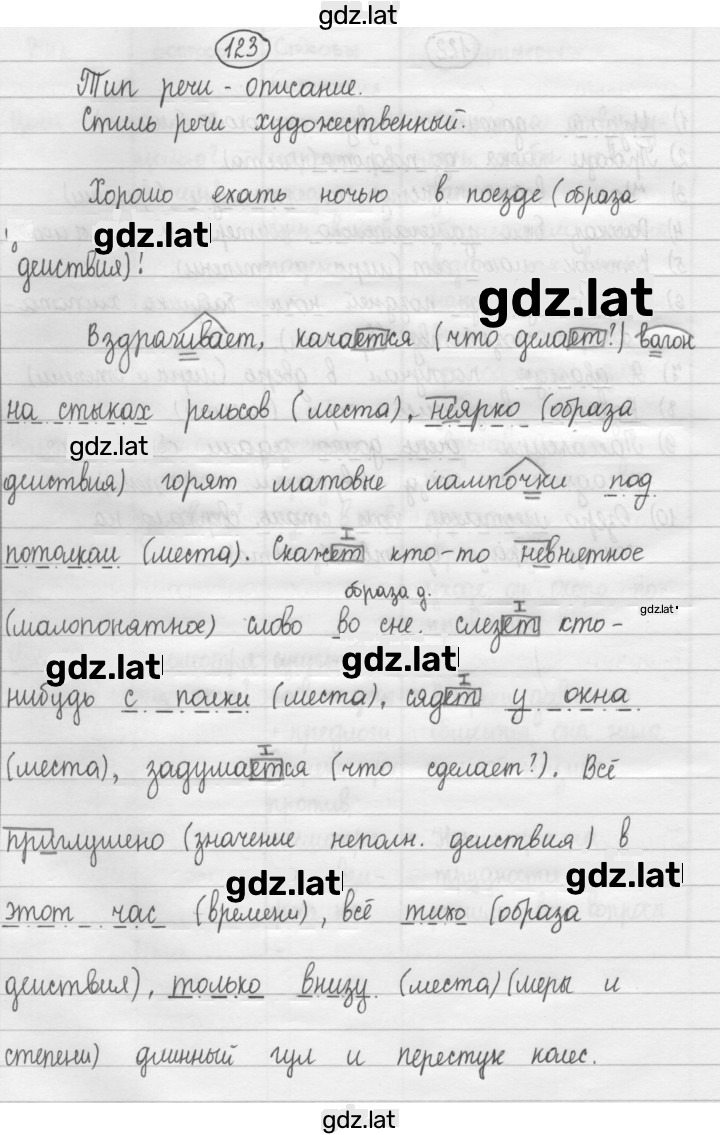 gdz.lat
123
Тип речи - описание.
Стиль речи художественный.
Хорошо ехать ночью в поезде (образа
gdz.lat
действия)!
gdz.lat
Вздрагивает, качается (что делает?) вагон
на стыках рельсов (места), неярко (образа
gdz.lat
действия) горят матовые лампочки под
потолком (места). Скажет кто-то невнятное
образа д.
(малопонятное) слово во сне. слезет кто-
gdz.lat
gdz.lat
gdz.lat
нибудь с полки (места), сядет у окна
(места), задумается (что сделает?). Всё
приглушено (значение неполн. действия) в
gdz.lat
gdz.lat
этот час (времени), всё тихо (образа
действия), только внизу (места) (меры и
степени) длинный гул и перестук колес.
gdz.lat